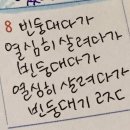 8 빈둥대다가
열심히 살려다가
빈둥대다가
열심히 살려다가
빈둥대기 고고